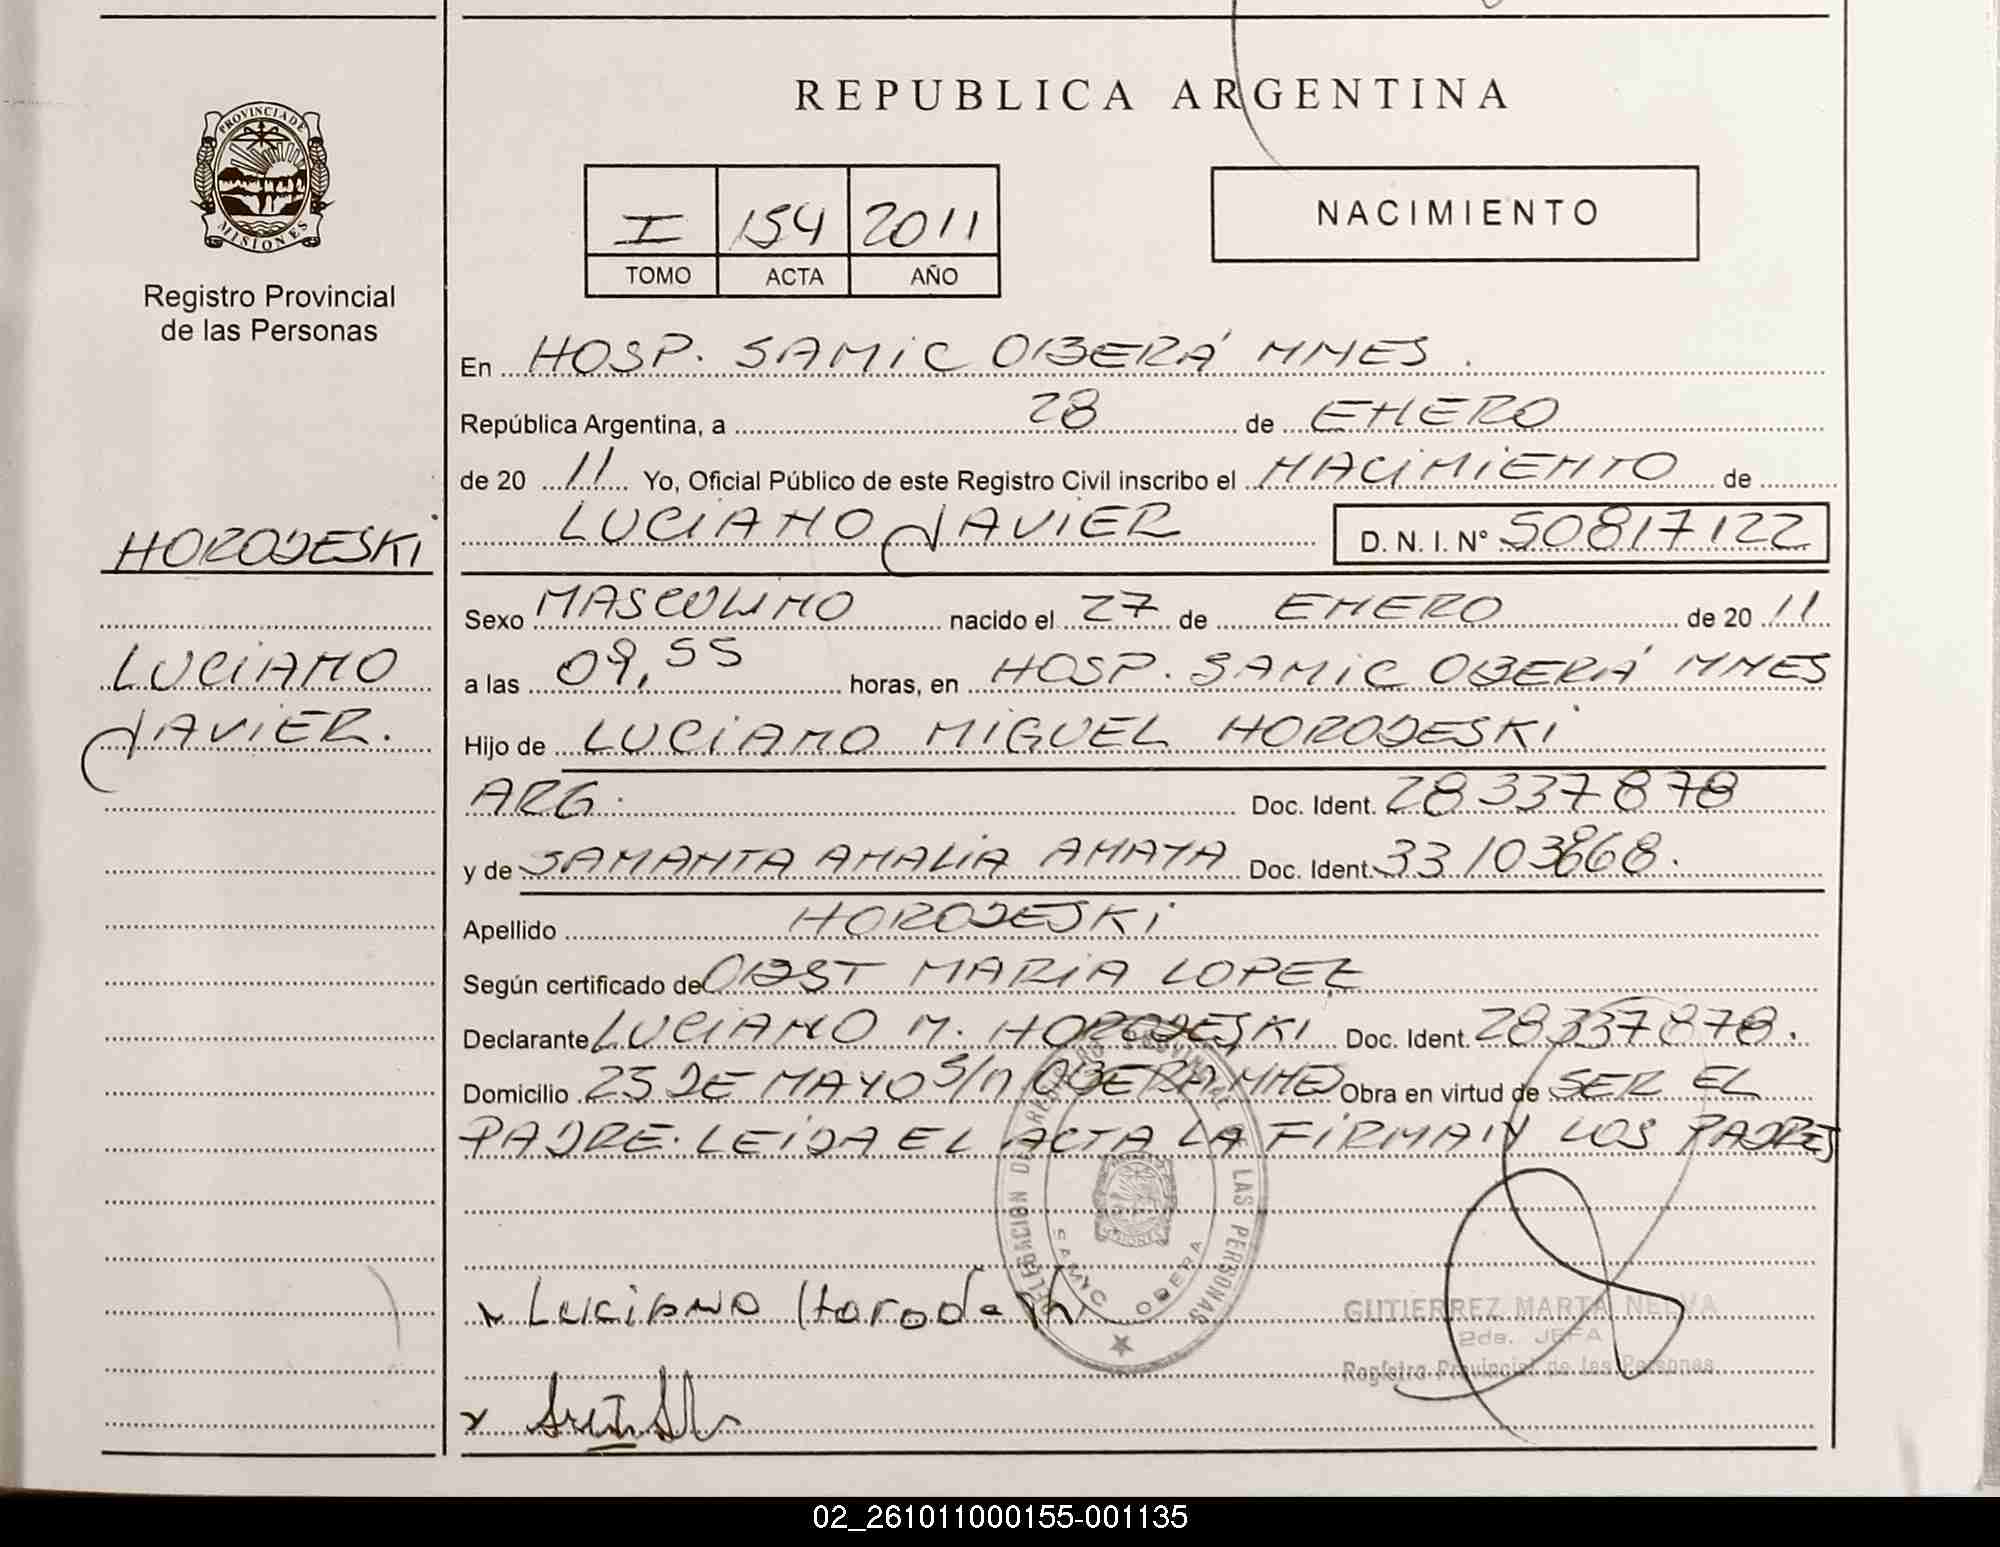 REPUBLICA ARGENTINA
PROVINCIA DE
MISIONES
Registro Provincial
de las Personas
I 154 2011
TOMO ACTA AÑO
NACIMIENTO
En HOSP. SAMIC OBERÁ MNES.
República Argentina, a 28 de ENERO
de 20 11 Yo, Oficial Público de este Registro Civil inscribo el NACIMIENTO de
LUCIANO JAVIER D. N. I. N° 50817122
HORODESKI
LUCIANO
JAVIER.
Sexo MASCULINO nacido el 27 de ENERO de 20 11
a las 09,55 horas, en HOSP. SAMIC OBERÁ MNES
Hijo de LUCIANO MIGUEL HORODESKI
ARG. Doc. Ident. 28337878
y de SAMANTA AMALIA AMAYA Doc. Ident. 33103868.
Apellido HORODESKI
Según certificado de OBST MARIA LOPEZ
Declarante LUCIANO M. HORODESKI Doc. Ident. 28337878.
Domicilio 25 DE MAYO S/N OBERA MNES Obra en virtud de SER EL
PADRE. LEIDA EL ACTA LA FIRMAN LOS PADRES
DELEGACION DEL REGISTRO PROVINCIAL DE LAS PERSONAS
SAMIC OBERA
MISIONES
Luciano
GUTIERREZ MARTA NELVA
2da. JEFA
Registro Provincial de las Personas
02_261011000155-001135